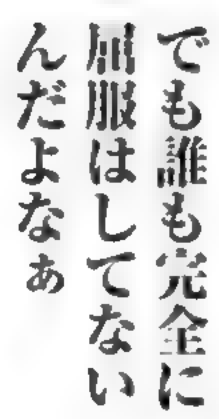 でも誰も完全に
屈服はしてない
んだよなぁ